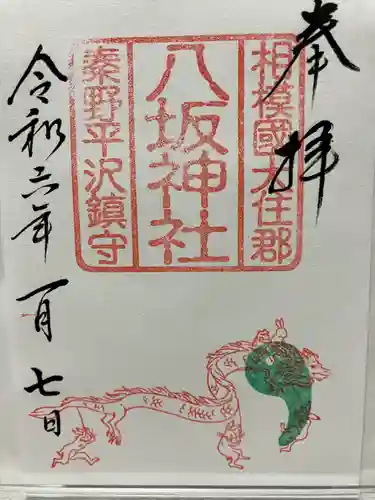 奉拝
相模國大住郡
八坂神社
秦野平沢鎮守
令和六年一月七日